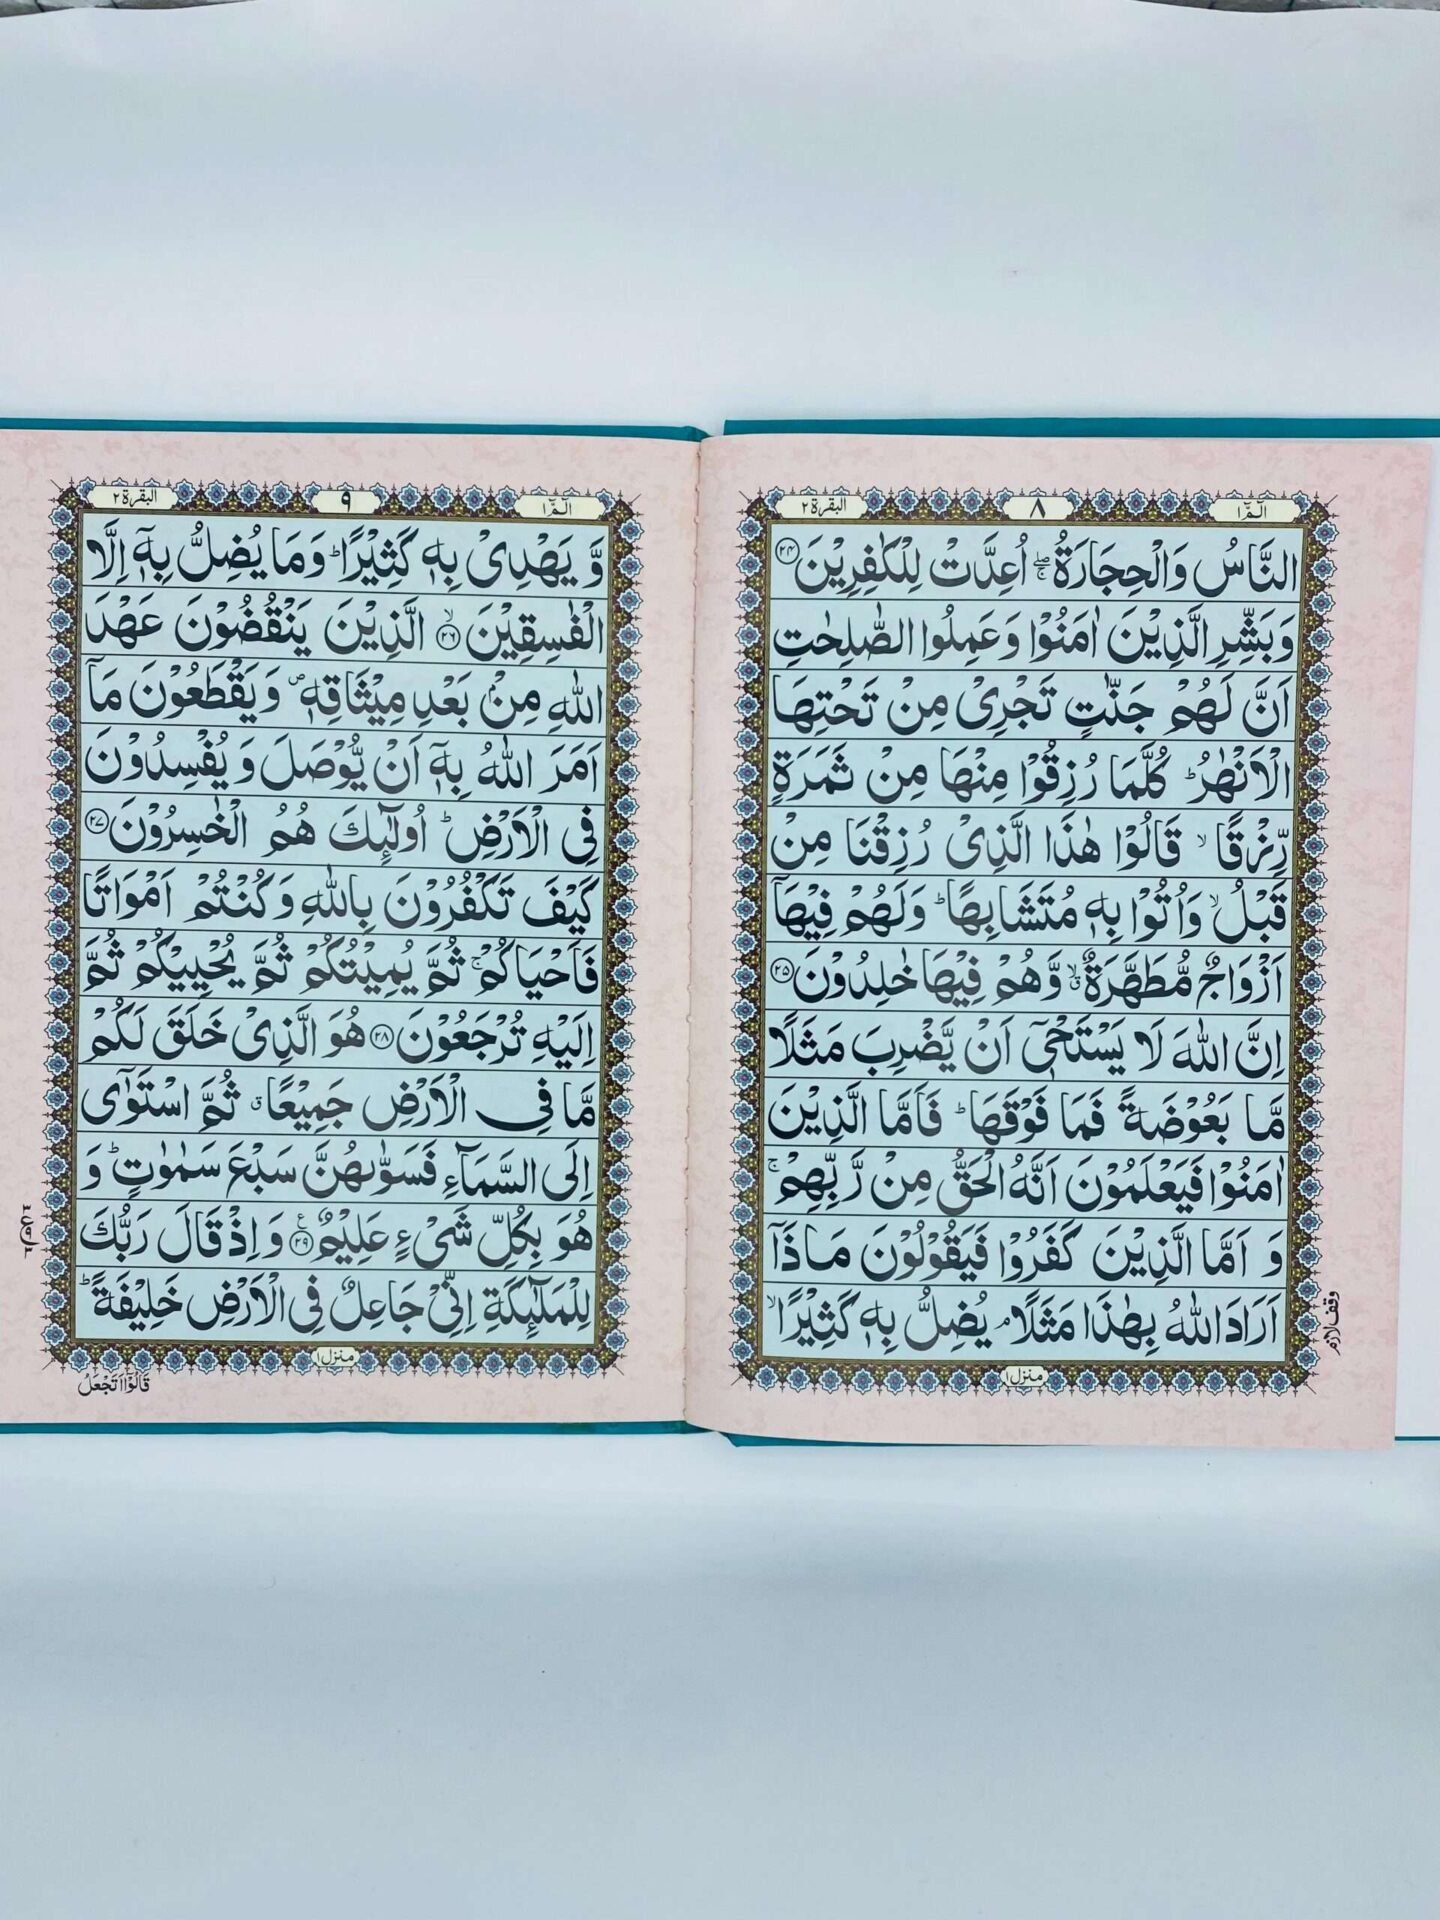 الٓمّٓ ١
٨
البقرة ٢
النَّاسُ وَالْحِجَارَةُ ۖۚ اُعِدَّتْ لِلْكٰفِرِيْنَ ﴿۲۴﴾
وَبَشِّرِ الَّذِيْنَ اٰمَنُوْا وَعَمِلُوا الصّٰلِحٰتِ
اَنَّ لَهُمْ جَنّٰتٍ تَجْرِيْ مِنْ تَحْتِهَا
الْاَنْهٰرُ ؕ كُلَّمَا رُزِقُوْا مِنْهَا مِنْ ثَمَرَةٍ
رِّزْقًا ۙ قَالُوْا هٰذَا الَّذِيْ رُزِقْنَا مِنْ
قَبْلُ ۙ وَاُتُوْا بِهٖ مُتَشَابِهًا ؕ وَلَهُمْ فِيْهَآ
اَزْوَاجٌ مُّطَهَّرَةٌ ۙۗ وَّهُمْ فِيْهَا خٰلِدُوْنَ ﴿۲۵﴾
اِنَّ اللّٰهَ لَا يَسْتَحْيٖٓ اَنْ يَّضْرِبَ مَثَلًا
مَّا بَعُوْضَةً فَمَا فَوْقَهَا ؕ فَاَمَّا الَّذِيْنَ
اٰمَنُوْا فَيَعْلَمُوْنَ اَنَّهُ الْحَقُّ مِنْ رَّبِّهِمْ ۚ
وَ اَمَّا الَّذِيْنَ كَفَرُوْا فَيَقُوْلُوْنَ مَاذَآ
اَرَادَ اللّٰهُ بِهٰذَا مَثَلًا ۘ يُضِلُّ بِهٖ كَثِيْرًا ۙ
وقف لازم
منزل ١
الٓمّٓ ١
٩
البقرة ٢
وَّ يَهْدِيْ بِهٖ كَثِيْرًا ؕ وَمَا يُضِلُّ بِهٖٓ اِلَّا
الْفٰسِقِيْنَ ﴿۲۶﴾ ۙ الَّذِيْنَ يَنْقُضُوْنَ عَهْدَ
اللّٰهِ مِنْۢ بَعْدِ مِيْثَاقِهٖ ۪ وَيَقْطَعُوْنَ مَآ
اَمَرَ اللّٰهُ بِهٖٓ اَنْ يُّوْصَلَ وَ يُفْسِدُوْنَ
فِي الْاَرْضِ ؕ اُولٰٓئِكَ هُمُ الْخٰسِرُوْنَ ﴿۲۷﴾
كَيْفَ تَكْفُرُوْنَ بِاللّٰهِ وَكُنْتُمْ اَمْوَاتًا
فَاَحْيَاكُمْ ۚ ثُمَّ يُمِيْتُكُمْ ثُمَّ يُحْيِيْكُمْ ثُمَّ
اِلَيْهِ تُرْجَعُوْنَ ﴿۲۸﴾ هُوَ الَّذِيْ خَلَقَ لَكُمْ
مَّا فِي الْاَرْضِ جَمِيْعًا ۗ ثُمَّ اسْتَوٰٓى
اِلَى السَّمَآءِ فَسَوّٰىهُنَّ سَبْعَ سَمٰوٰتٍ ؕ وَ
هُوَ بِكُلِّ شَيْءٍ عَلِيْمٌ ﴿۲۹﴾ ۧ وَ اِذْ قَالَ رَبُّكَ
لِلْمَلٰٓئِكَةِ اِنِّيْ جَاعِلٌ فِي الْاَرْضِ خَلِيْفَةً ؕ
منزل ١
قَالُوْٓا اَتَجْعَلُ